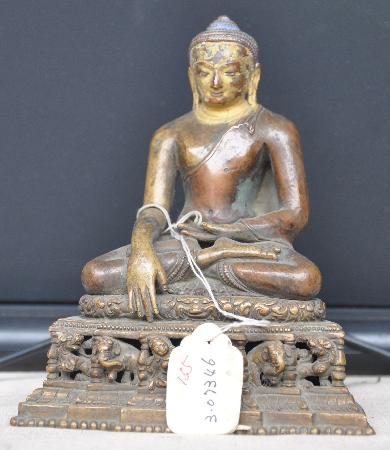 185
3-07346